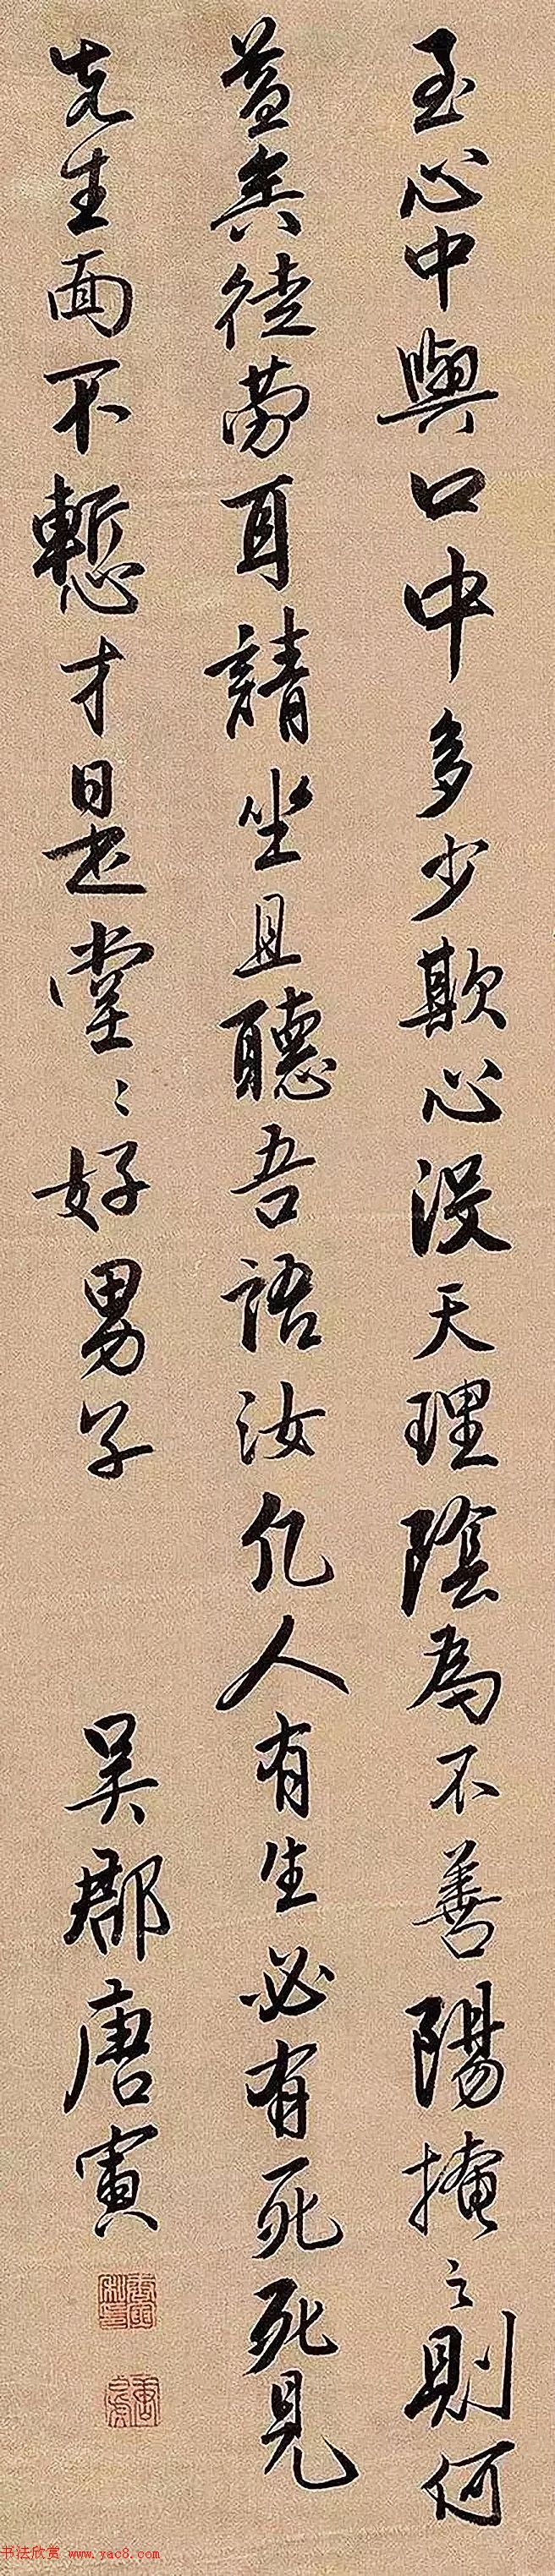 至心中與口中多少欺心没天理陰為不善陽掩之則何
益矣徒勞耳請坐且聽吾語汝凡人有生必有死死見
先生面不慙才是堂〻好男子
吳郡唐寅
书法欣赏 www.yac8.com